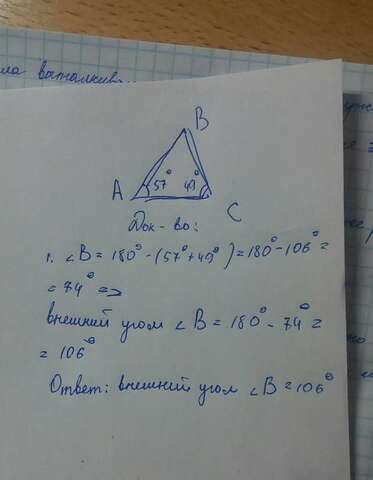 ла выталкив
B
57° 49°
A
C
Док-во:
1. ∠B = 180° - (57° + 49°) = 180° - 106° =
= 74° =>
внешний угол ∠B = 180° - 74° =
= 106°
Ответ: внешний угол ∠B = 106°